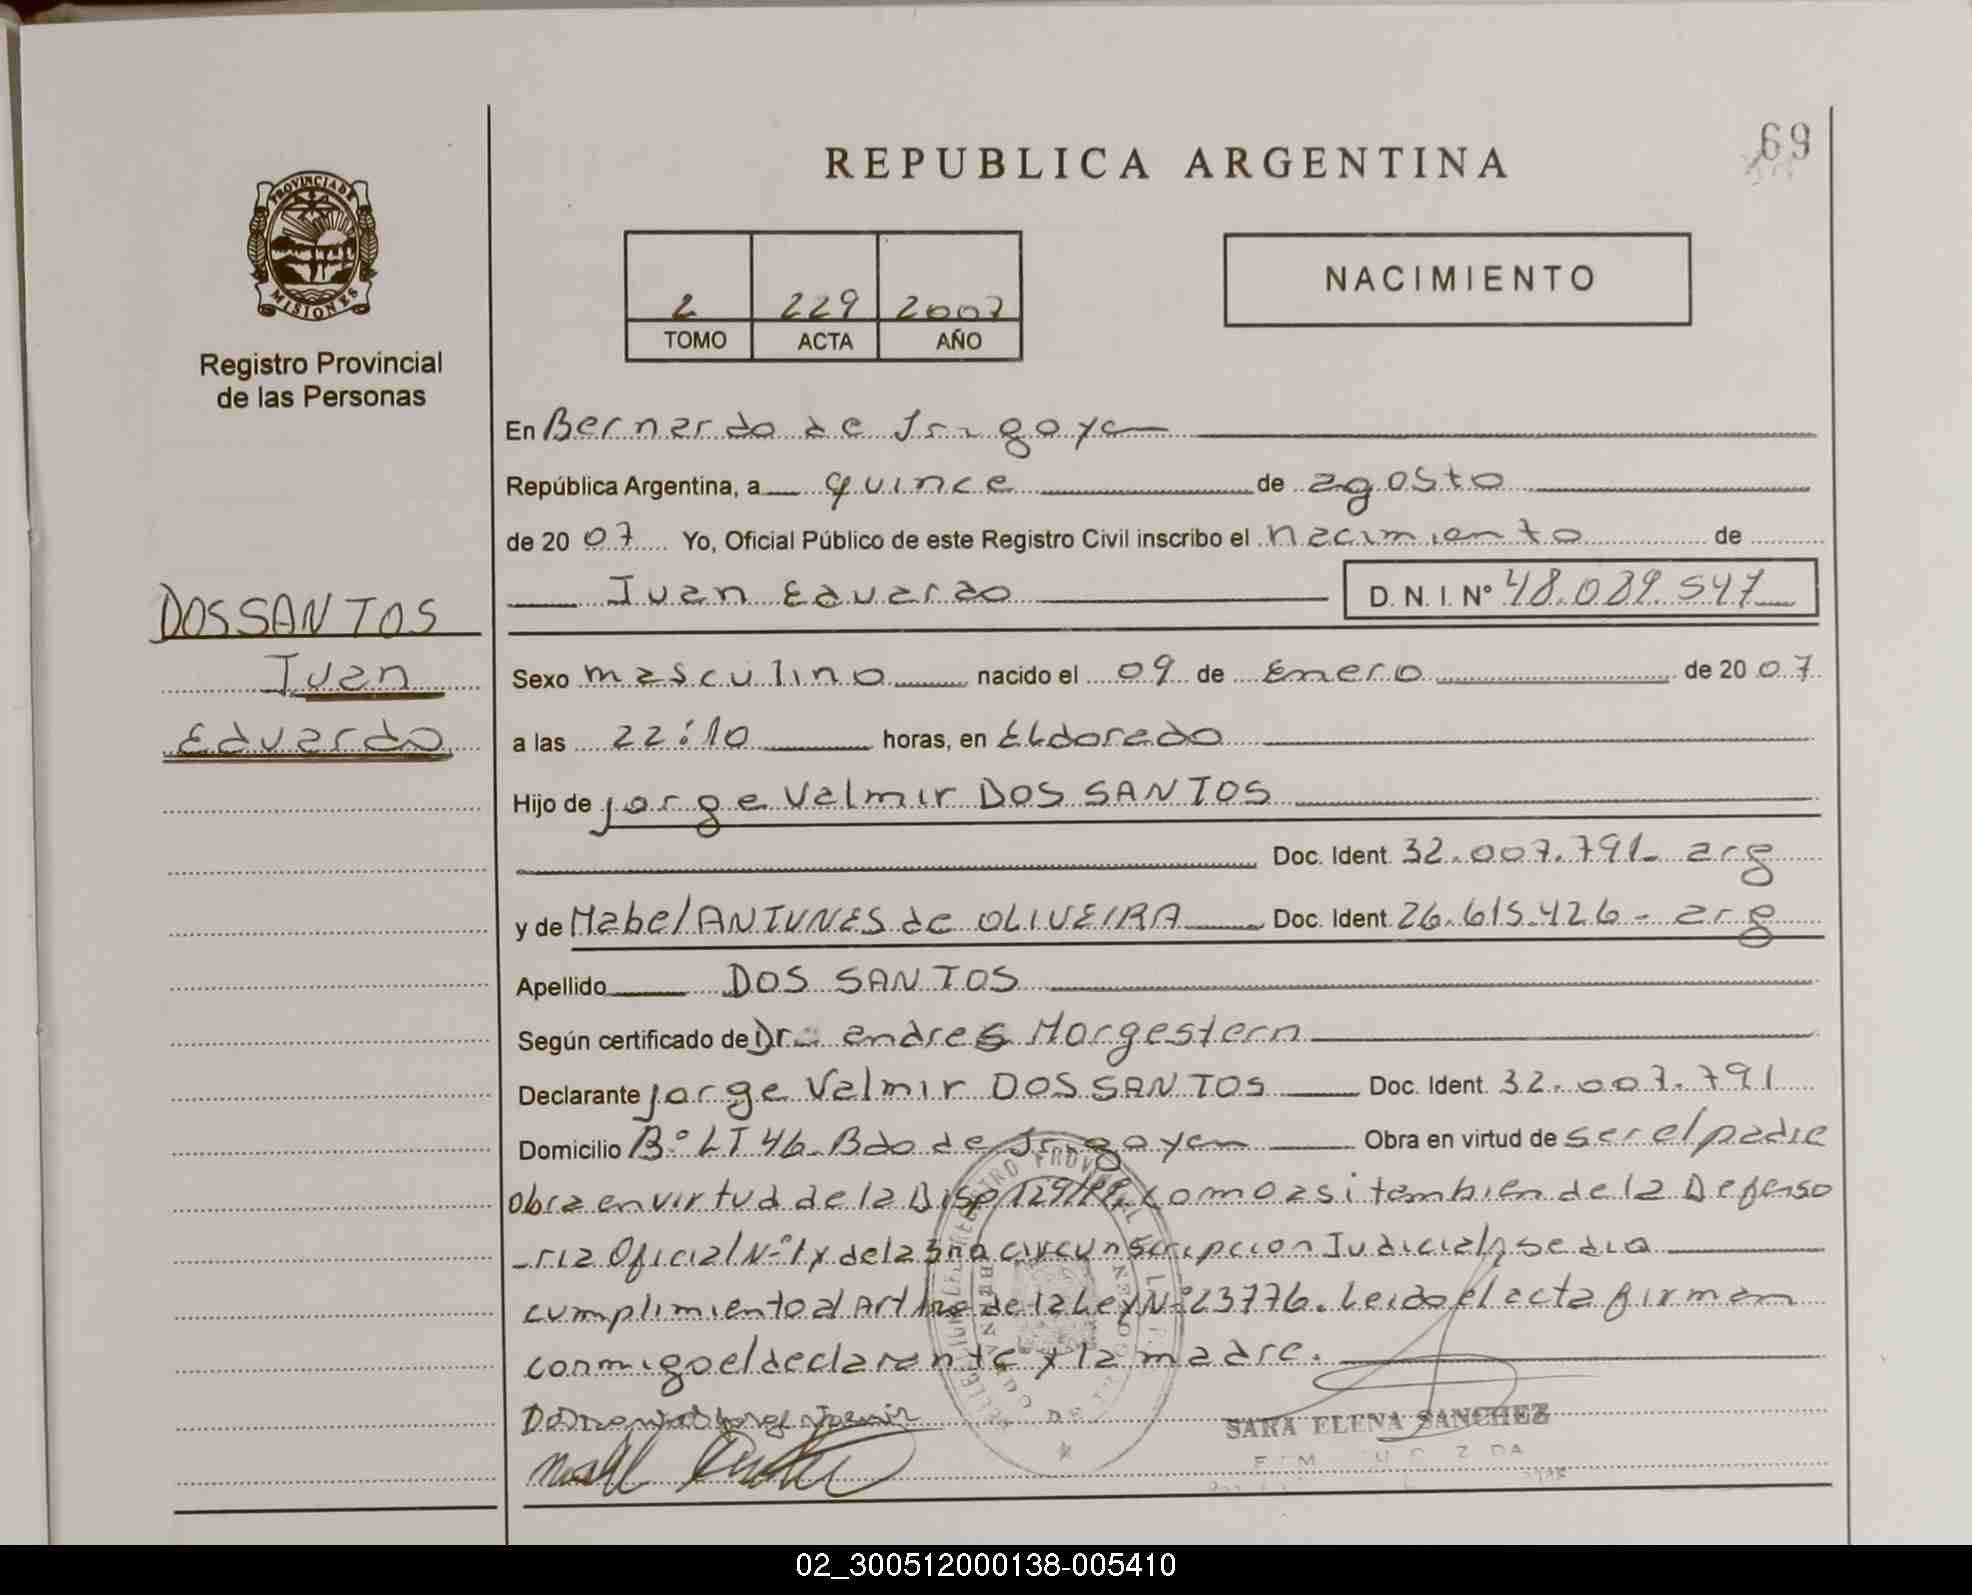 REPUBLICA ARGENTINA
69
PROVINCIA DE
MISIONES
Registro Provincial
de las Personas
2 229 2007
TOMO ACTA AÑO
NACIMIENTO
En Bernardo de Irigoyen
República Argentina, a quince de agosto
de 2007 Yo, Oficial Público de este Registro Civil inscribo el nacimiento de
Juan Eduardo D.N.I. Nº 48.089.547
DOS SANTOS
Juan
Eduardo
Sexo masculino nacido el 09 de Enero de 2007
a las 22:10 horas, en Eldorado
Hijo de Jorge Valmir DOS SANTOS
Doc. Ident. 32.007.791- arg
y de Mabel ANTUNES de OLIVEIRA Doc. Ident. 26.615.426 - arg
Apellido DOS SANTOS
Según certificado de Dr. andres Morgestern
Declarante Jorge Valmir DOS SANTOS Doc. Ident. 32.007.791
Domicilio Bº LT 46 Bdo de Irigoyen Obra en virtud de ser el padre
obra en virtud de la Disp 129/ como asi tambien de la Defenso
-ria Oficial Nº 1 y de la 3ra circunscripcion Judicial, se dio
cumplimiento al Art de la Ley Nº 23776. Leido el acta firman
conmigo el declarante y la madre.
SARA ELENA SANCHEZ
02_300512000138-005410